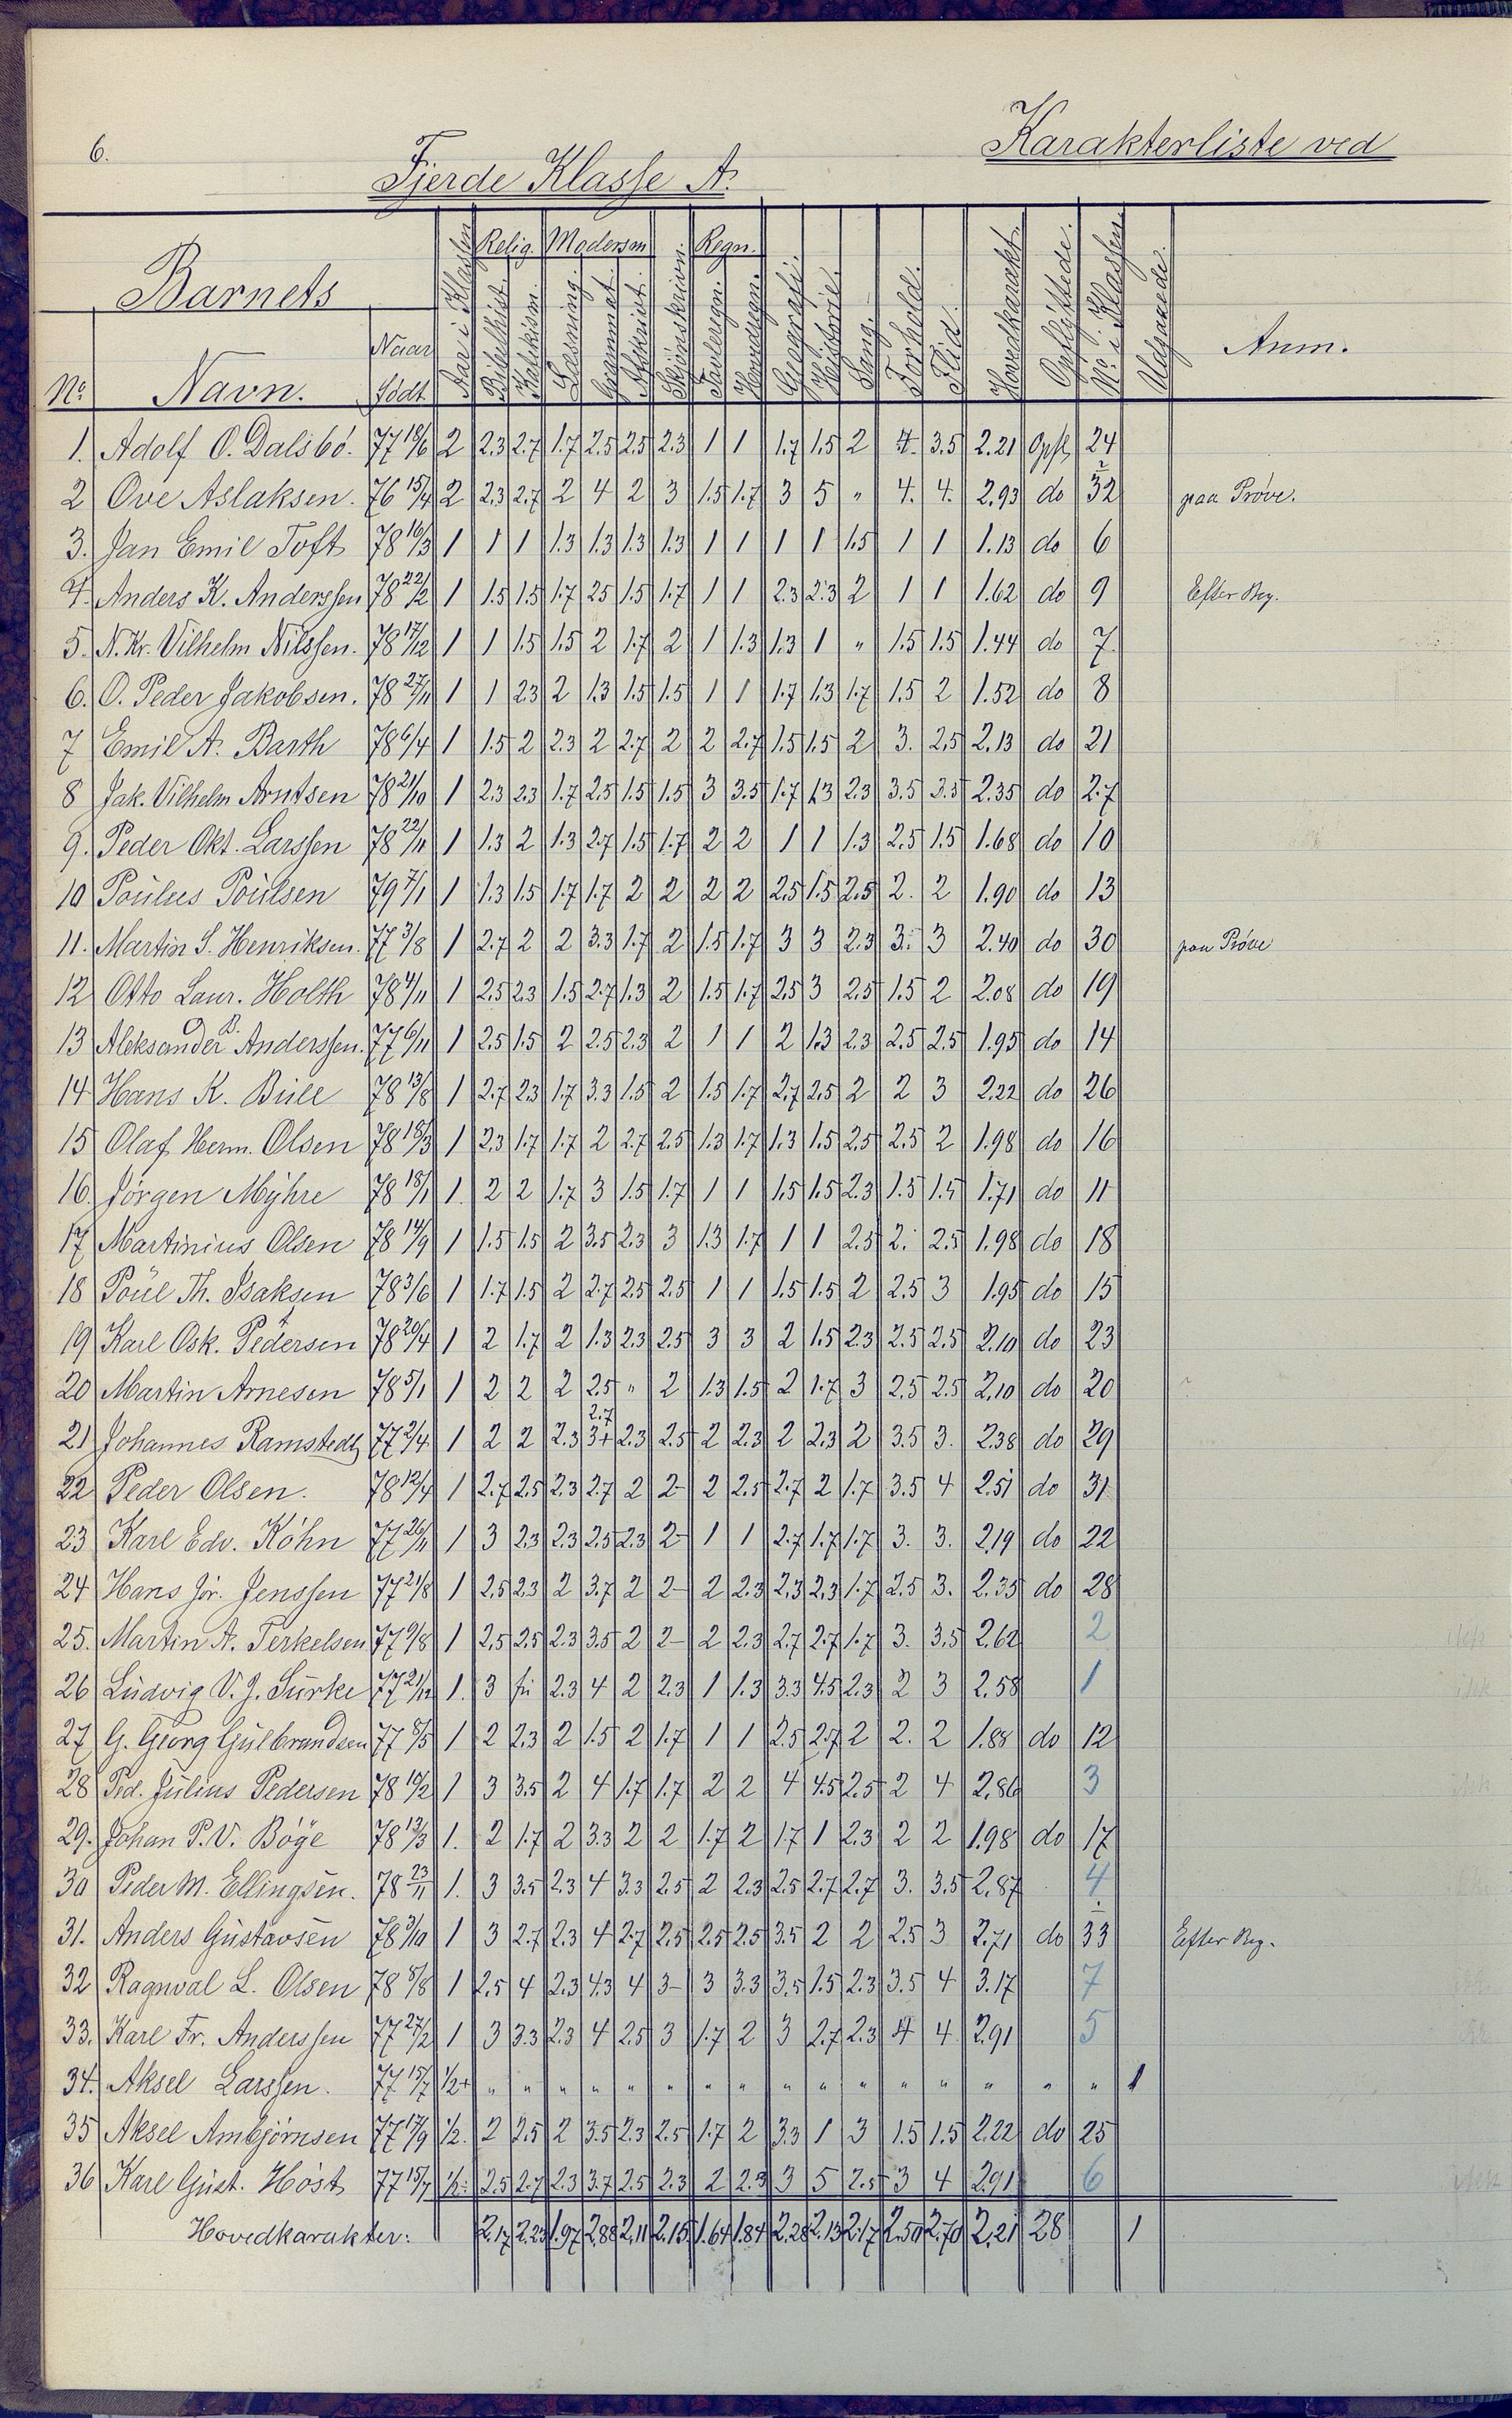 6.
Karakterliste ved
Fjerde Klasse A.
Barnets
Nº
Navn.
Naar født
Aar i Klassen
Relig.
Bibelhist.
Katekism.
Modersm.
Læsning
Grammat.
Afskrivt.
Skjönskrivn.
Regn.
Tavleregn.
Hovedregn.
Geografi.
Historie.
Sang.
Forhold.
Flid.
Hovedkarakt.
Opflyttede.
Nº i Klassen.
Udgaaede.
Anm.
1. Adolf O. Dalsbó. 77 18/6 2 2.3 2.7 1.7 2.5 2.5 2.3 1 1 1.7 1.5 2 4. 3.5 2.21 Opfl, 24
2 Ove Aslaksen. 76 15/4 2 2.3 2.7 2 4 2 3 1.5 1.7 3 5 " 4. 4. 2.93 do 32 paa Próve.
3. Jan Emil Toft 78 16/3 1 1 1 1.3 1.3 1.3 1.3 1 1 1 1 1.5 1 1 1.13 do 6
4. Anders K. Anderssen 78 22/2 1 1.5 1.5 1.7 2.5 1.5 1.7 1 1 2.3 2.3 2 1 1 1.62 do 9 Efter Beg.
5. N. Kr. Vilhelm Nilssen. 78 17/12 1 1 1.5 1.5 2 1.7 2 1 1.3 1.3 1 " 1.5 1.5 1.44 do 7.
6. O. Peder Jakobsen. 78 27/11 1 1 2.3 2 1.3 1.5 1.5 1 1 1.7 1.3 1.7 1.5 2 1.52 do 8
7 Emil A. Barth 78 6/4 1 1.5 2 2.3 2 2.7 2 2 2.7 1.5 1.5 2 3. 2.5 2.13 do 21
8 Jak. Vilhelm Arntsen 78 21/10 1 2.3 2.3 1.7 2.5 1.5 1.5 3 3.5 1.7 1.3 2.3 3.5 3.5 2.35 do 27
9. Peder Okt. Larssen 78 22/11 1 1.3 2 1.3 2.7 1.5 1.7 2 2 1 1 1.3 2.5 1.5 1.68 do 10
10 Poulus Poulsen 79 7/1 1 1.3 1.5 1.7 1.7 2 2 2 2 2.5 1.5 2.5 2. 2 1.90 do 13
11. Martin S. Henriksen. 77 3/8 1 2.7 2 2 3.3 1.7 2 1.5 1.7 3 3 2.3 3. 3 2.40 do 30 paa Próve
12 Otto Laur. Holth 78 4/11 1 2.5 2.3 1.5 2.7 1.3 2 1.5 1.7 2.5 3 2.5 1.5 2 2.08 do 19
13 Aleksander B. Anderssen. 77 6/11 1 2.5 1.5 2 2.5 2.3 2 1 1 2 1.3 2.3 2.5 2.5 1.95 do 14
14 Hans K. Bull 78 13/8 1 2.7 2.3 1.7 3.3 1.5 2 1.5 1.7 2.7 2.5 2 2 3 2.22 do 26
15 Olaf Herm. Olsen 78 18/3 1 2.3 1.7 1.7 2 2.7 2.5 1.3 1.7 1.3 1.5 2.5 2.5 2 1.98 do 16
16. Jörgen Myhre 78 18/1 1. 2 2 1.7 3 1.5 1.7 1 1 1.5 1.5 2.3 1.5 1.5 1.71 do 11
17 Martinius Olsen 78 14/9 1 1.5 1.5 2 3.5 2.3 3 1.3 1.7 1 1 2.5 2. 2.5 1.98 do 18
18 Poul Th. Isaksen 78 3/6 1 1.7 1.5 2 2.7 2.5 2.5 1 1 1.5 1.5 2 2.5 3 1.95 do 15
19 Karl Osk. Pedersen 78 20/4 1 2 1.7 2 1.3 2.3 2.5 3 3 2 1.5 2.3 2.5 2.5 2.10 do 23
20 Martin Arnesen 78 5/1 1 2 2 2 2.5 " 2 1.3 1.5 2 1.7 3 2.5 2.5 2.10 do 20
2.7
21 Johannes Ramstedt 77 2/4 1 2 2 2.3 3+ 2.3 2.5 2 2.3 2 2.3 2 3.5 3. 2.38 do 29
22 Peder Olsen. 78 12/4 1 2.7 2.5 2.3 2.7 2 2- 2 2.5 2.7 2 1.7 3.5 4 2.51 do 31
23 Karl Edv. Köhn 77 26/11 1 3 2.3 2.3 2.5 2.3 2- 1 1 2.7 1.7 1.7 3. 3. 2.19 do 22
24 Hans Jör. Jenssen 77 21/8 1 2.5 2.3 2 3.7 2 2- 2 2.3 2.3 2.3 1.7 2.5 3. 2.35 do 28
25. Martin A. Terkelsen 77 9/8 1 2.5 2.5 2.3 3.5 2 2- 2 2.3 2.7 2.7 1.7 3. 3.5 2.62 2
26 Ludvig V. J. Surke 77 21/12 1. 3 fri 2.3 4 2 2.3 1 1.3 3.3 4.5 2.3 2 3 2.58 1
27 G. Georg Gulbrandsen 77 8/5 1 2 2.3 2 1.5 2 1.7 1 1 2.5 2.7 2 2. 2 1.88 do 12
28 Ped. Julius Pedersen 78 10/2 1 3 3.5 2 4 1.7 1.7 2 2 4 4.5 2.5 2 4 2.86 3
29. Johan P. V. Böye 78 13/3 1. 2 1.7 2 3.3 2 2 1.7 2 1.7 1 2.3 2 2 1.98 do 17
30 Peder M. Ellingsen. 78 23/11 1. 3 3.5 2.3 4 3.3 2.5 2 2.3 2.5 2.7 2.7 3. 3.5 2.87 4
31. Anders Gustavsen 78 3/10 1 3 2.7 2.3 4 2.7 2.5 2.5 2.5 3.5 2 2 2.5 3 2.71 do 33 Efter Beg.
32 Ragnval L. Olsen 78 5/8 1 2.5 4 2.3 4.3 4 3- 3 3.3 3.5 1.5 2.3 3.5 4 3.17 7
33. Karl Fr. Anderssen 77 27/2 1 3 3.3 2.3 4 2.5 3 1.7 2 3 2.7 2.3 4 4 2.91 5
34. Aksel Larssen. 77 15/7 1/2+ " " " " " " " " " " " " " " " " 1
35 Aksel Ambjörnsen 77 17/9 1/2. 2 2.5 2 3.5 2.3 2.5 1.7 2 3.3 1 3 1.5 1.5 2.22 do 25
36 Karl Gust. Höst 77 15/7 1/2 2.5 2.7 2.3 3.7 2.5 2.3 2 2.3 3 5 2.5 3 4 2.91 6
Hovedkarakter: 2.17 2.23 1.97 2.88 2.11 2.15 1.64 1.84 2.28 2.13 2.17 2.50 2.70 2.21 28 1